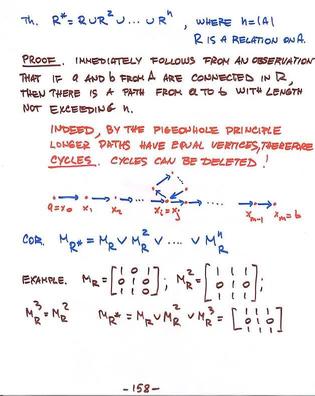 Th. R* = R ∪ R² ∪ ... ∪ Rⁿ, WHERE n = |A|
R IS A RELATION ON A.
PROOF. IMMEDIATELY FOLLOWS FROM AN OBSERVATION
THAT IF a AND b FROM A ARE CONNECTED IN R,
THEN THERE IS A PATH FROM a TO b WITH LENGTH
NOT EXCEEDING n.
INDEED, BY THE PIGEONHOLE PRINCIPLE
LONGER PATHS HAVE EQUAL VERTICES, THEREFORE
CYCLES. CYCLES CAN BE DELETED!
a=x₀ x₁ x₂ xᵢ=xⱼ xₘ₋₁ xₘ=b
COR. M_R* = M_R ∨ M_R² ∨ ... ∨ M_Rⁿ
EXAMPLE. M_R = [1 0 1; 0 1 0; 1 1 0]; M_R² = [1 1 1; 0 1 0; 1 1 1];
M_R³ = M_R² M_R* = M_R ∨ M_R² ∨ M_R³ = [1 1 1; 0 1 0; 1 1 1]
-158-